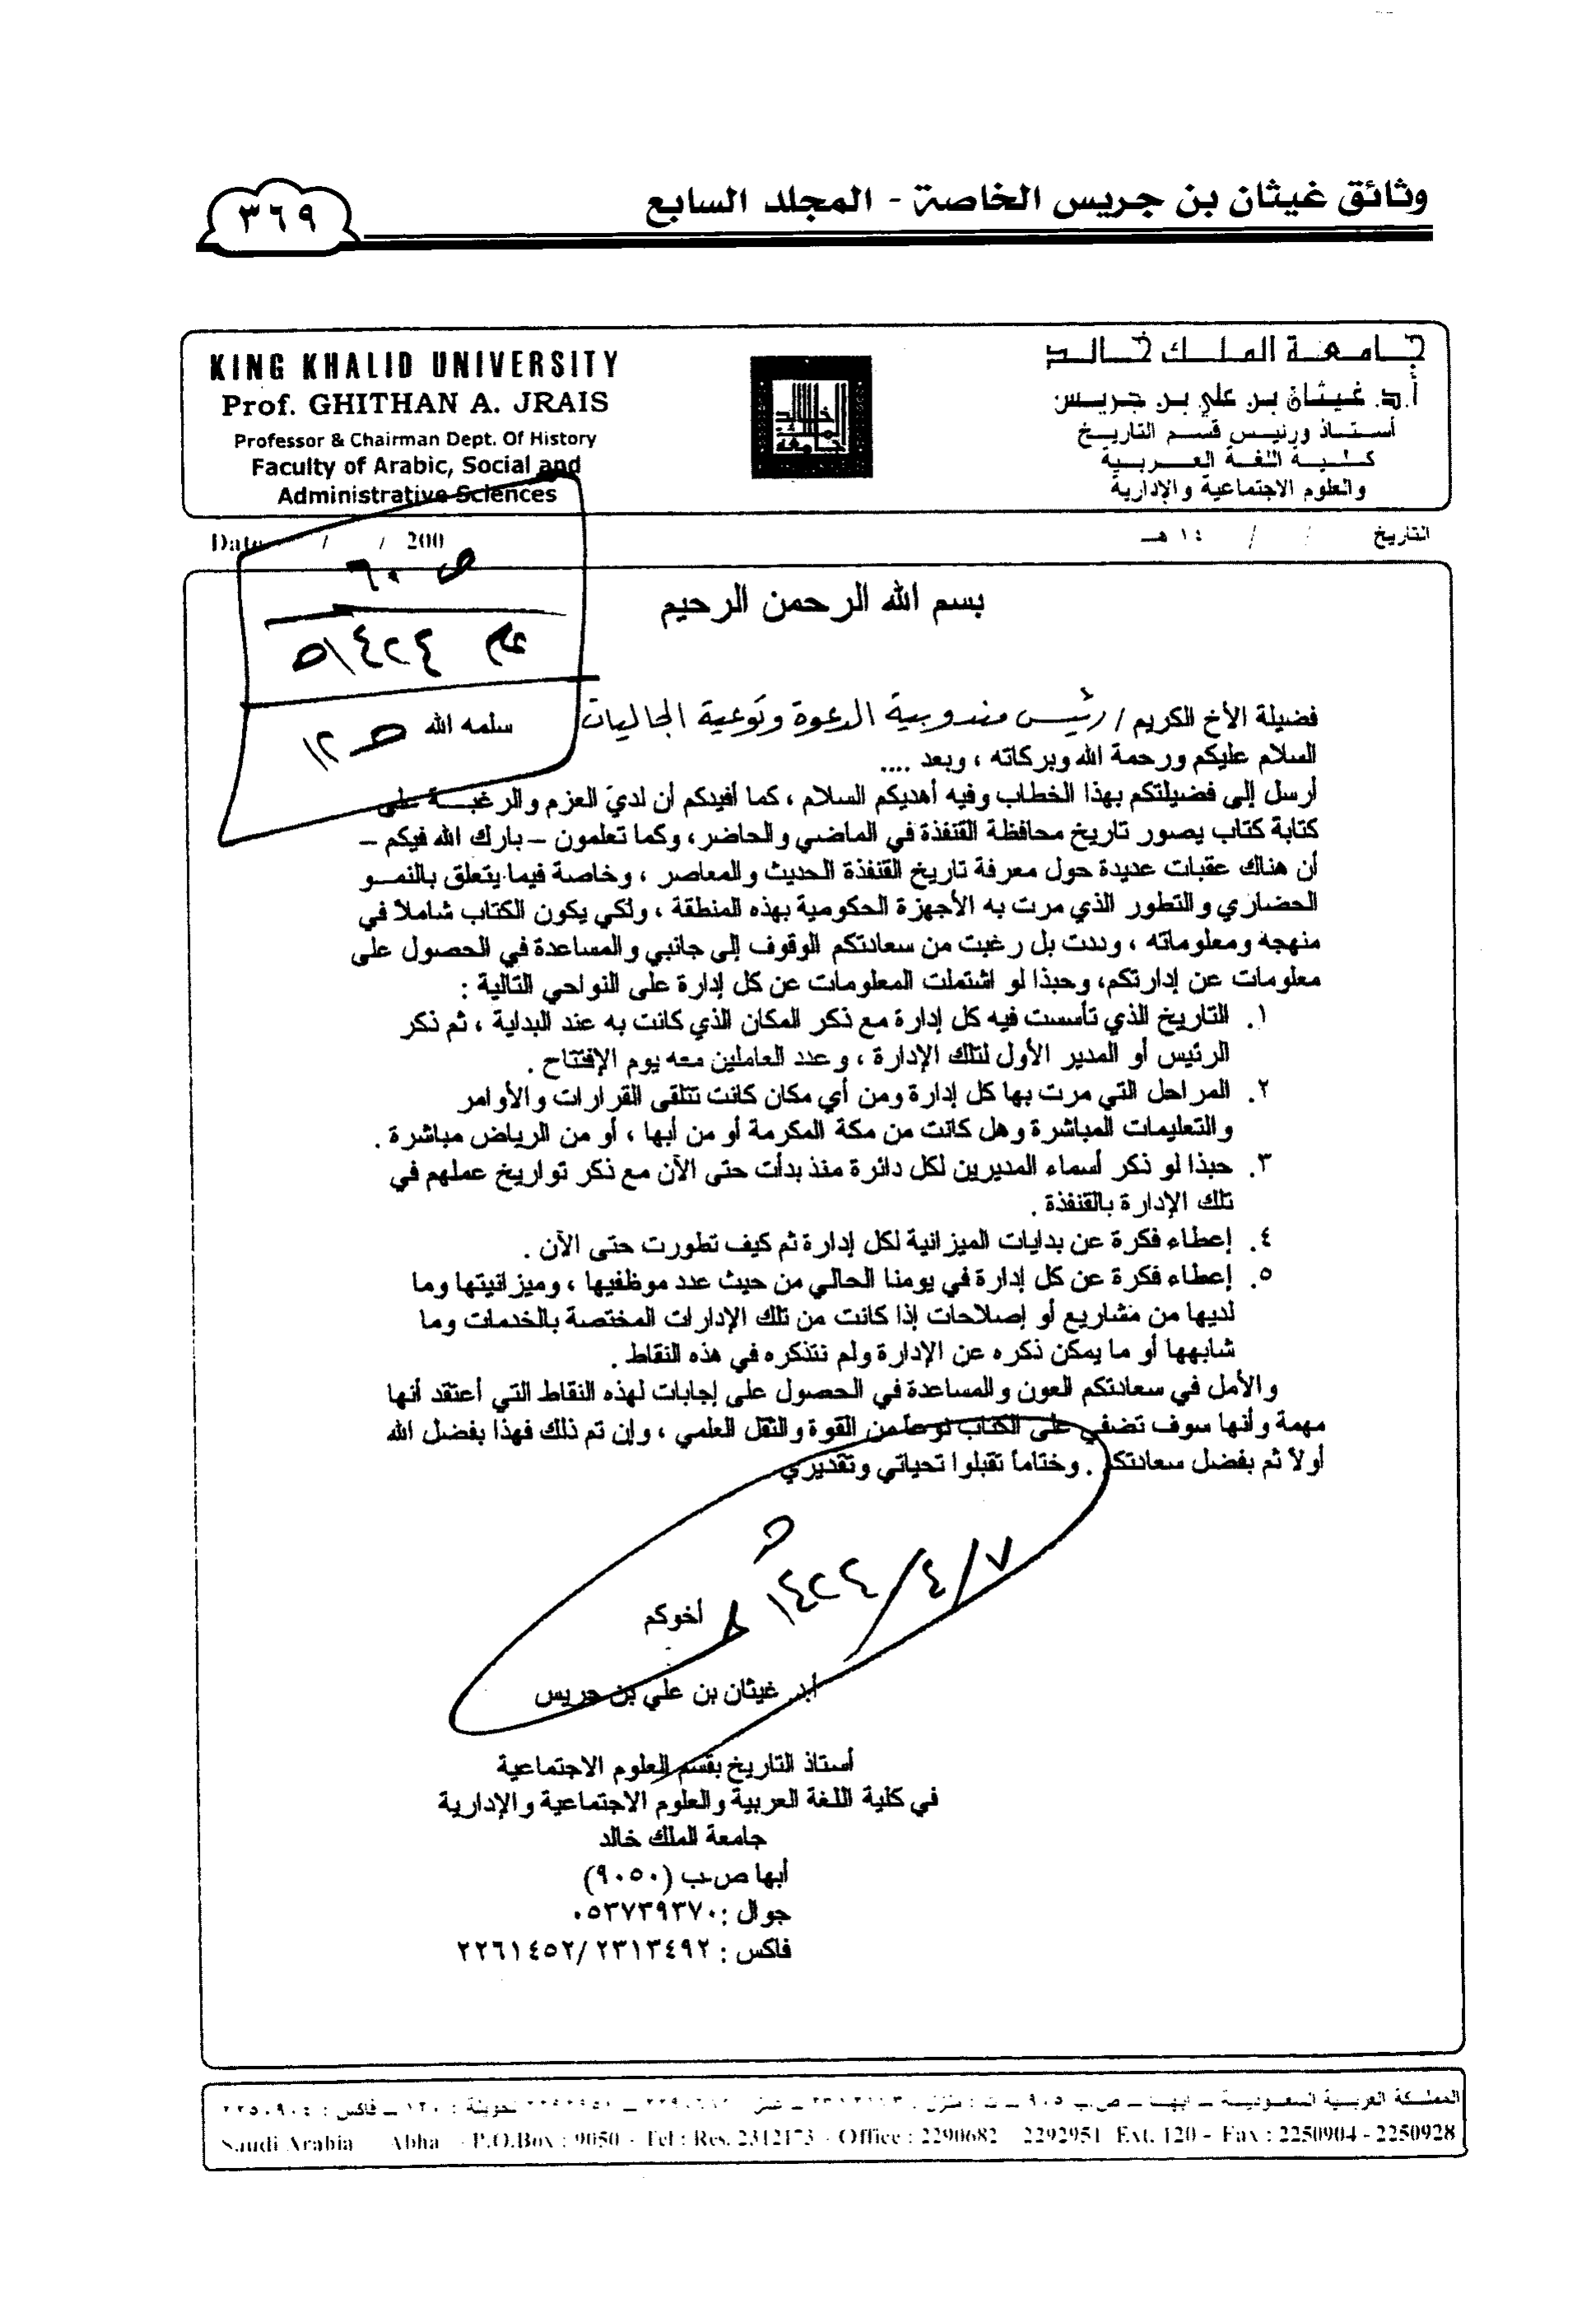 وثائق غيثان بن جريس الخاصة - المجلد السابع
٣٦٩
جامعة الملك خالد
أ.د. غيثان بن علي بن جريس
أستاذ ورئيس قسم التاريخ
كلية اللغة العربية
والعلوم الاجتماعية والإدارية
KING KHALID UNIVERSITY
Prof. GHITHAN A. JRAIS
Professor & Chairman Dept. Of History
Faculty of Arabic, Social and
Administrative Sciences
التاريخ / / ١٤ هـ
Date / / 200
ص ٦٠
٥/٤٢٤
ص ١٢
بسم الله الرحمن الرحيم
فضيلة الأخ الكريم / رئيس مندوبية الدعوة وتوعية الجاليات سلمه الله
السلام عليكم ورحمة الله وبركاته ، وبعد ....
أرسل إلى فضيلتكم بهذا الخطاب وفيه أهديكم السلام ، كما أفيدكم أن لديّ العزم والرغبة على
كتابة كتاب يصور تاريخ محافظة القنفذة في الماضي والحاضر، وكما تعلمون – بارك الله فيكم –
أن هناك عقبات عديدة حول معرفة تاريخ القنفذة الحديث والمعاصر ، وخاصة فيما يتعلق بالنمو
الحضاري والتطور الذي مرت به الأجهزة الحكومية بهذه المنطقة ، ولكي يكون الكتاب شاملاً في
منهجه ومعلوماته ، وددت بل رغبت من سعادتكم الوقوف إلى جانبي والمساعدة في الحصول على
معلومات عن إدارتكم، وحبذا لو اشتملت المعلومات عن كل إدارة على النواحي التالية :
١. التاريخ الذي تأسست فيه كل إدارة مع ذكر المكان الذي كانت به عند البداية ، ثم ذكر
الرئيس أو المدير الأول لتلك الإدارة ، وعدد العاملين معه يوم الإفتتاح .
٢. المراحل التي مرت بها كل إدارة ومن أي مكان كانت تتلقى القرارات والأوامر
والتعليمات المباشرة وهل كانت من مكة المكرمة أو من أبها ، أو من الرياض مباشرة .
٣. حبذا لو ذكر أسماء المديرين لكل دائرة منذ بدأت حتى الآن مع ذكر تواريخ عملهم في
تلك الإدارة بالقنفذة .
٤. إعطاء فكرة عن بدايات الميزانية لكل إدارة ثم كيف تطورت حتى الآن .
٥. إعطاء فكرة عن كل إدارة في يومنا الحالي من حيث عدد موظفيها ، وميزانيتها وما
لديها من مشاريع أو إصلاحات إذا كانت من تلك الإدارات المختصة بالخدمات وما
شابهها أو ما يمكن ذكره عن الإدارة ولم نتذكره في هذه النقاط .
والأمل في سعادتكم العون والمساعدة في الحصول على إجابات لهذه النقاط التي أعتقد أنها
مهمة وأنها سوف تضفي على الكتاب نوعا من القوة والثقل العلمي ، وإن تم ذلك فهذا بفضل الله
أولاً ثم بفضل سعادتكم . وختاماً تقبلوا تحياتي وتقديري
٧/٤/١٤٢٤
أخوكم
أ.د. غيثان بن علي بن جريس
أستاذ التاريخ بقسم العلوم الاجتماعية
في كلية اللغة العربية والعلوم الاجتماعية والإدارية
جامعة الملك خالد
أبها ص.ب (٩٠٥٠)
جوال : ٠٥٣٧٣٩٣٧٠
فاكس : ٢٣١٣٤٩٢/٢٢٦١٤٥٢
المملكة العربية السعودية – أبها – ص.ب ٩٠٥ – ت : منزل تحويلة : ١٢٠ – فاكس : ٢٢٥٠٩٠٤
Saudi Arabia Abha - P.O.Box : 9050 - Tel : Res. 2312173 - Office : 2290682 2292951 Ext. 120 - Fax : 2250904 - 2250928